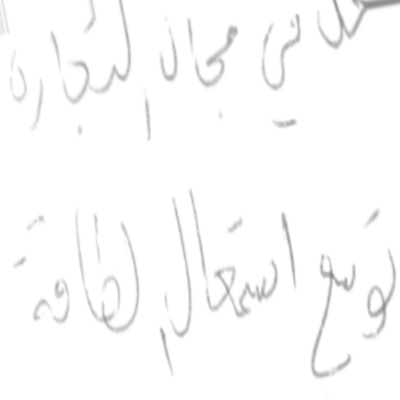 في مجال التجارة
توسع استعمال الطاقة